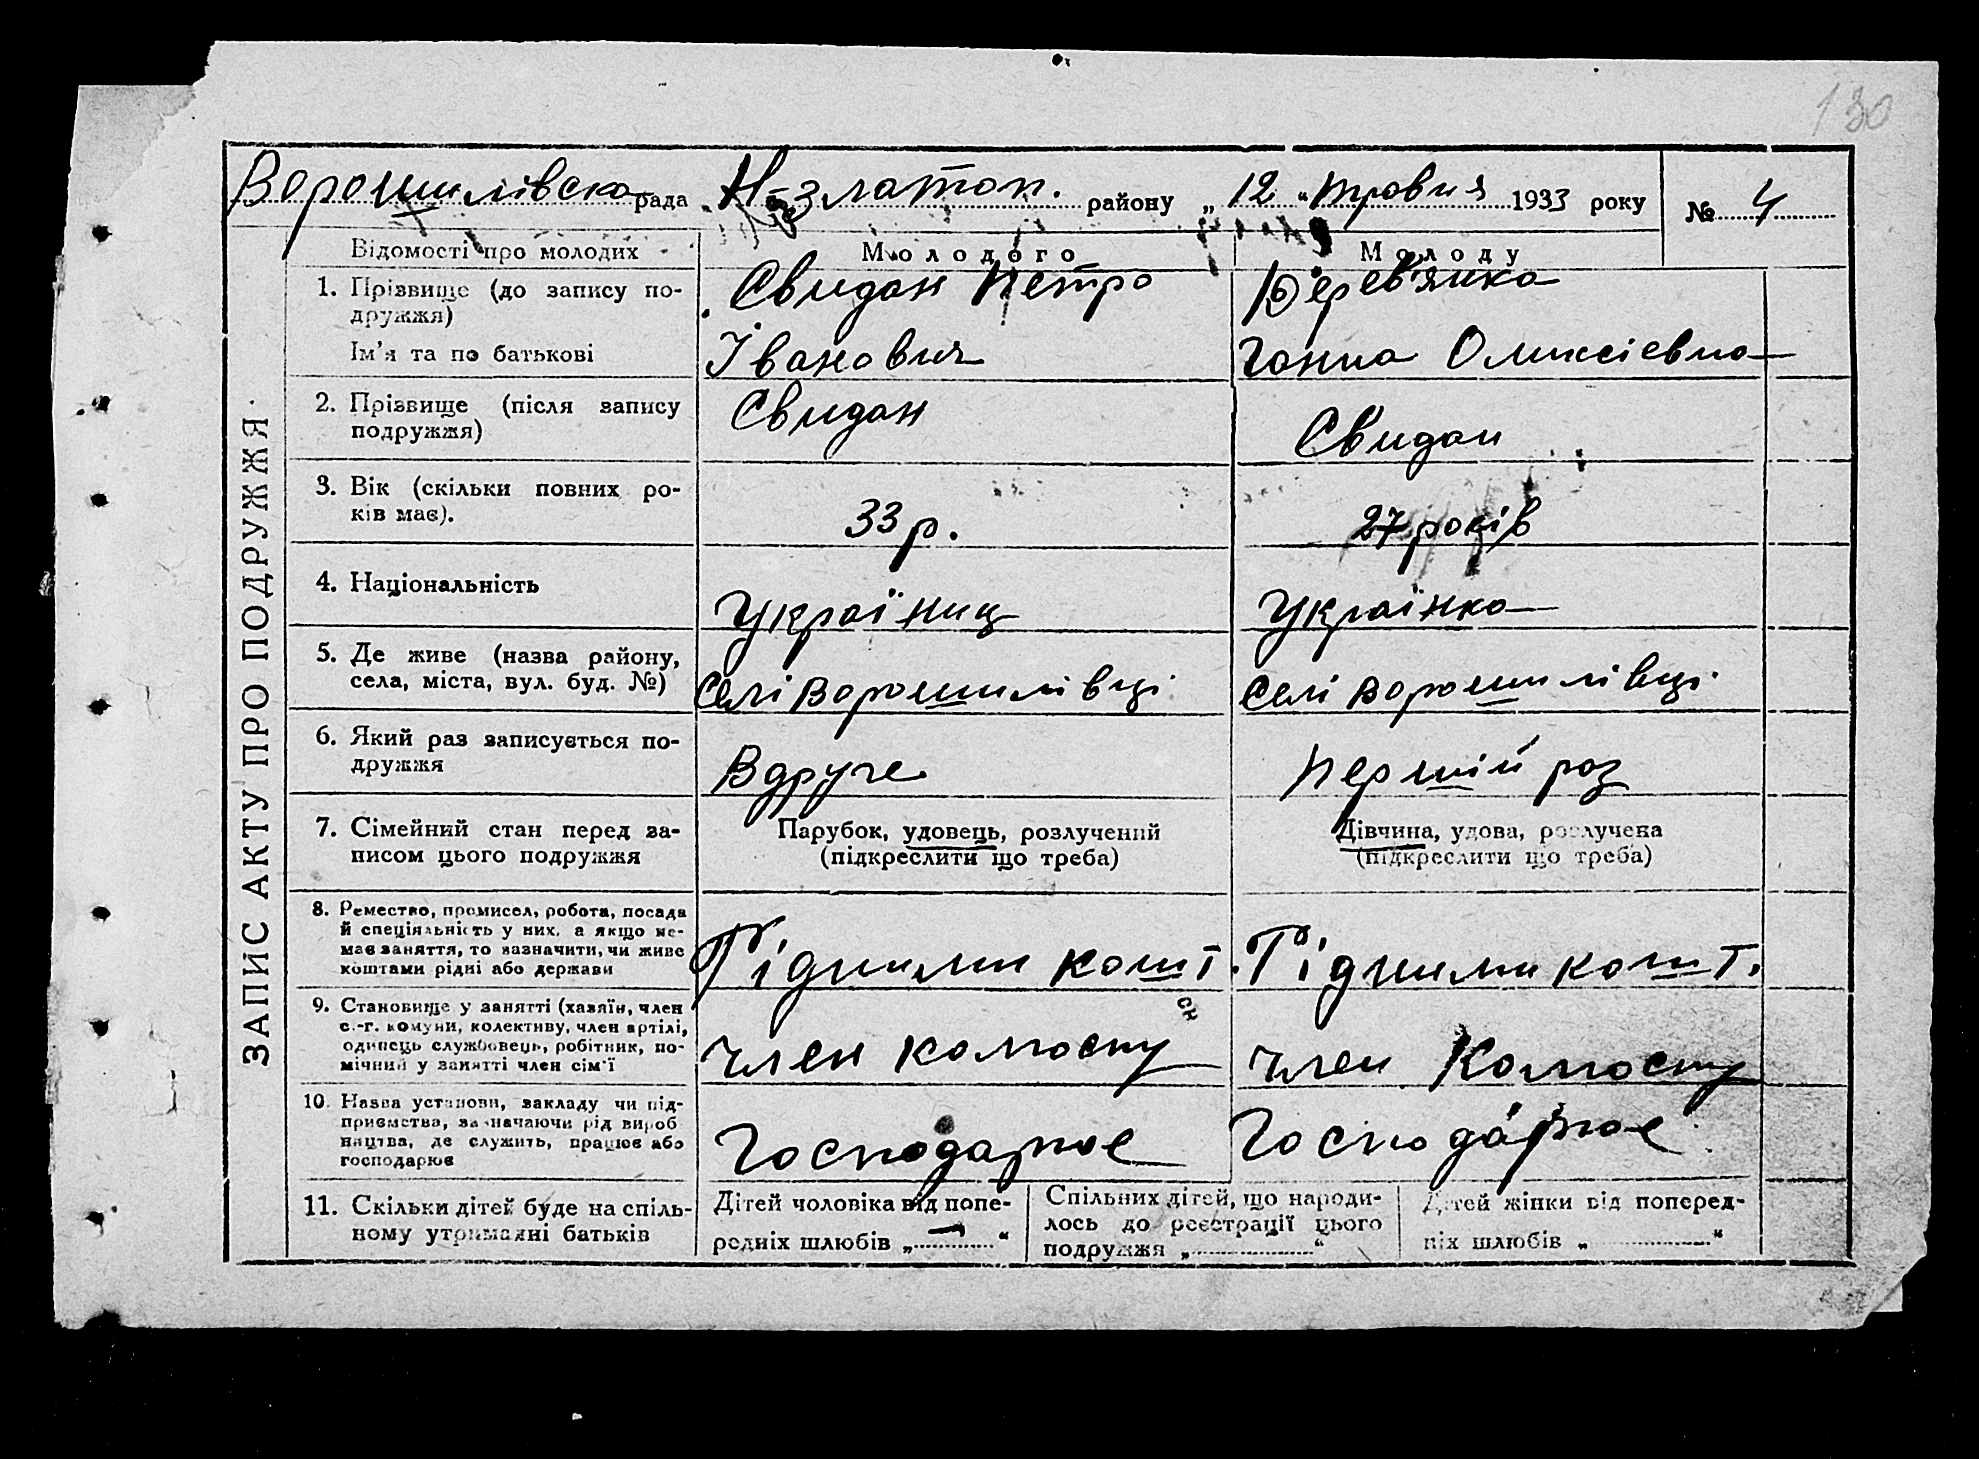 130
Ворошилівска рада Н-Златоп. району „12" травня 1933 року № 4
ЗАПИС АКТУ ПРО ПОДРУЖЖЯ
Відомості про молодих
Молодого
Молоду
1. Прізвище (до запису по-
дружжя)
Ім'я та по батькові
Свидан Петро
Іванович
Дерев'янка
Ганна Оликсієвна
2. Прізвище (після запису
подружжя)
Свидан
Свидан
3. Вік (скільки повних ро-
ків має).
33 р.
27 років
4. Національність
Україниц
Українка
5. Де живе (назва району,
села, міста, вул. буд. №)
Селі Ворошилівці
Селі Ворошилівці
6. Який раз записується по-
дружжя
Вдруге
Першій раз
7. Сімейний стан перед за-
писом цього подружжя
Парубок, удовець, розлучений
(підкреслити що треба)
Дівчина, удова, розлучена
(підкреслити що треба)
8. Ремество, промисел, робота, посада
й спеціяльність у них, а якщо не-
має заняття, то зазначити, чи живе
коштами рідні або держави
Рідними кошт.
Рідними кошт.
9. Становище у занятті (хазяїн, член
с.-г. комуни, колективу, член артілі,
одинець службовець, робітник, по-
мічний у занятті член сім'ї
член колгоспу
член Колгоспу
10. Назва установи, закладу чи під-
приємства, зазначаючи рід вироб
ництва, де служить, працює або
господарює
Господарює
Господарює
11. Скільки дітей буде на спіль-
ному утриманні батьків
Дітей чоловіка від попе-
редніх шлюбів „ — "
Спільних дітей, що народи-
лось до реєстрації цього
подружжя „ "
Дітей жінки від поперед-
ніх шлюбів „ "